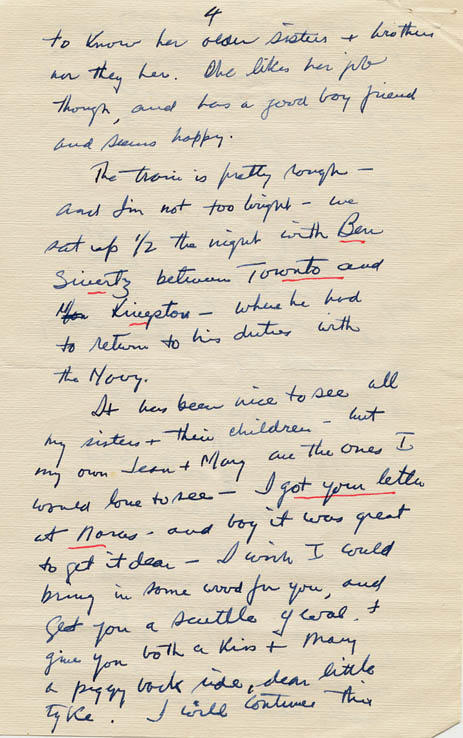 4
to know her older sisters + brothers
nor they her. She likes her job
though, and has a good boy friend
and seems happy.
The train is pretty rough –
and I'm not too bright – we
sat up 1/2 the night with Ben
Sivertz between Toronto and
Kingston – where he had
to return to his duties with
the Navy.
It has been nice to see all
my sisters + their children – but
my own Jean + Mary are the ones I
would love to see – I got your letter
at Noras – and boy it was great
to get it dear – I wish I could
bring in some wood for you, and
get you a scuttle of coal. +
give you both a Kiss + Mary
a piggy back ride, dear little
tyke. I will continue this